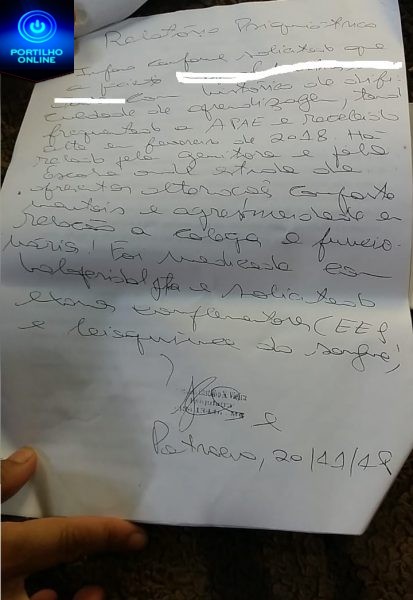 PORTILHO
ONLINE
Relatório Psiquiátrico
Informo conforme solicitado que
a paciente
com histórico de difi-
culdade de aprendizagem, tendo
frequentado a APAE e recebido
alta em fevereiro de 2018. Há
relato pela genitora e pela
escola onde estuda de
alterações comporta
mentais e agressividade em
relação a colegas e funcio-
nários! Foi medicada com
haloperidol e solicitado
exames complementares (EEG
e bioquímica do sangue)
Patrocínio, 20/11/18